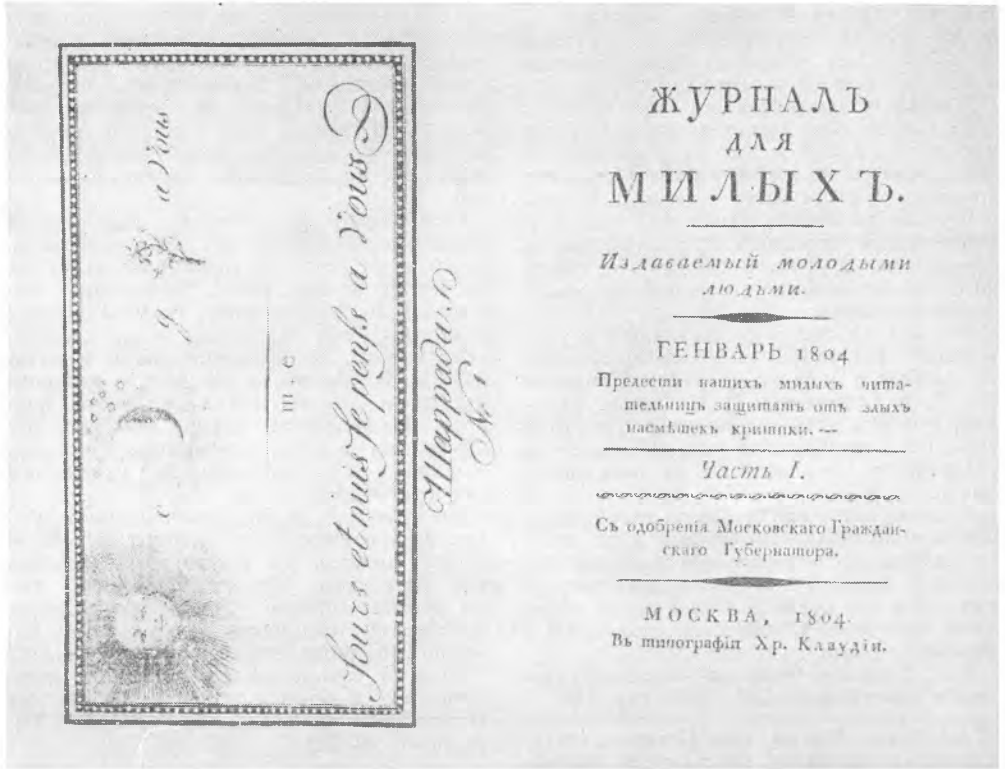 e y a Vous
m e
Jours et nuis je penss a Vous
Шаррада.
№ 1
ЖУРНАЛЪ
ДЛЯ
МИЛЫХЪ.
Издаваемый молодыми
людьми.
ГЕНВАРЬ 1804
Прелести нашихъ милыхъ чита-
тельницъ защитятъ отъ злыхъ
насмѣшекъ критики. —
Часть I.
Съ одобренія Московскаго Граждан-
скаго Губернатора.
МОСКВА, 1804.
Въ типографіи Хр. Клаудіи.